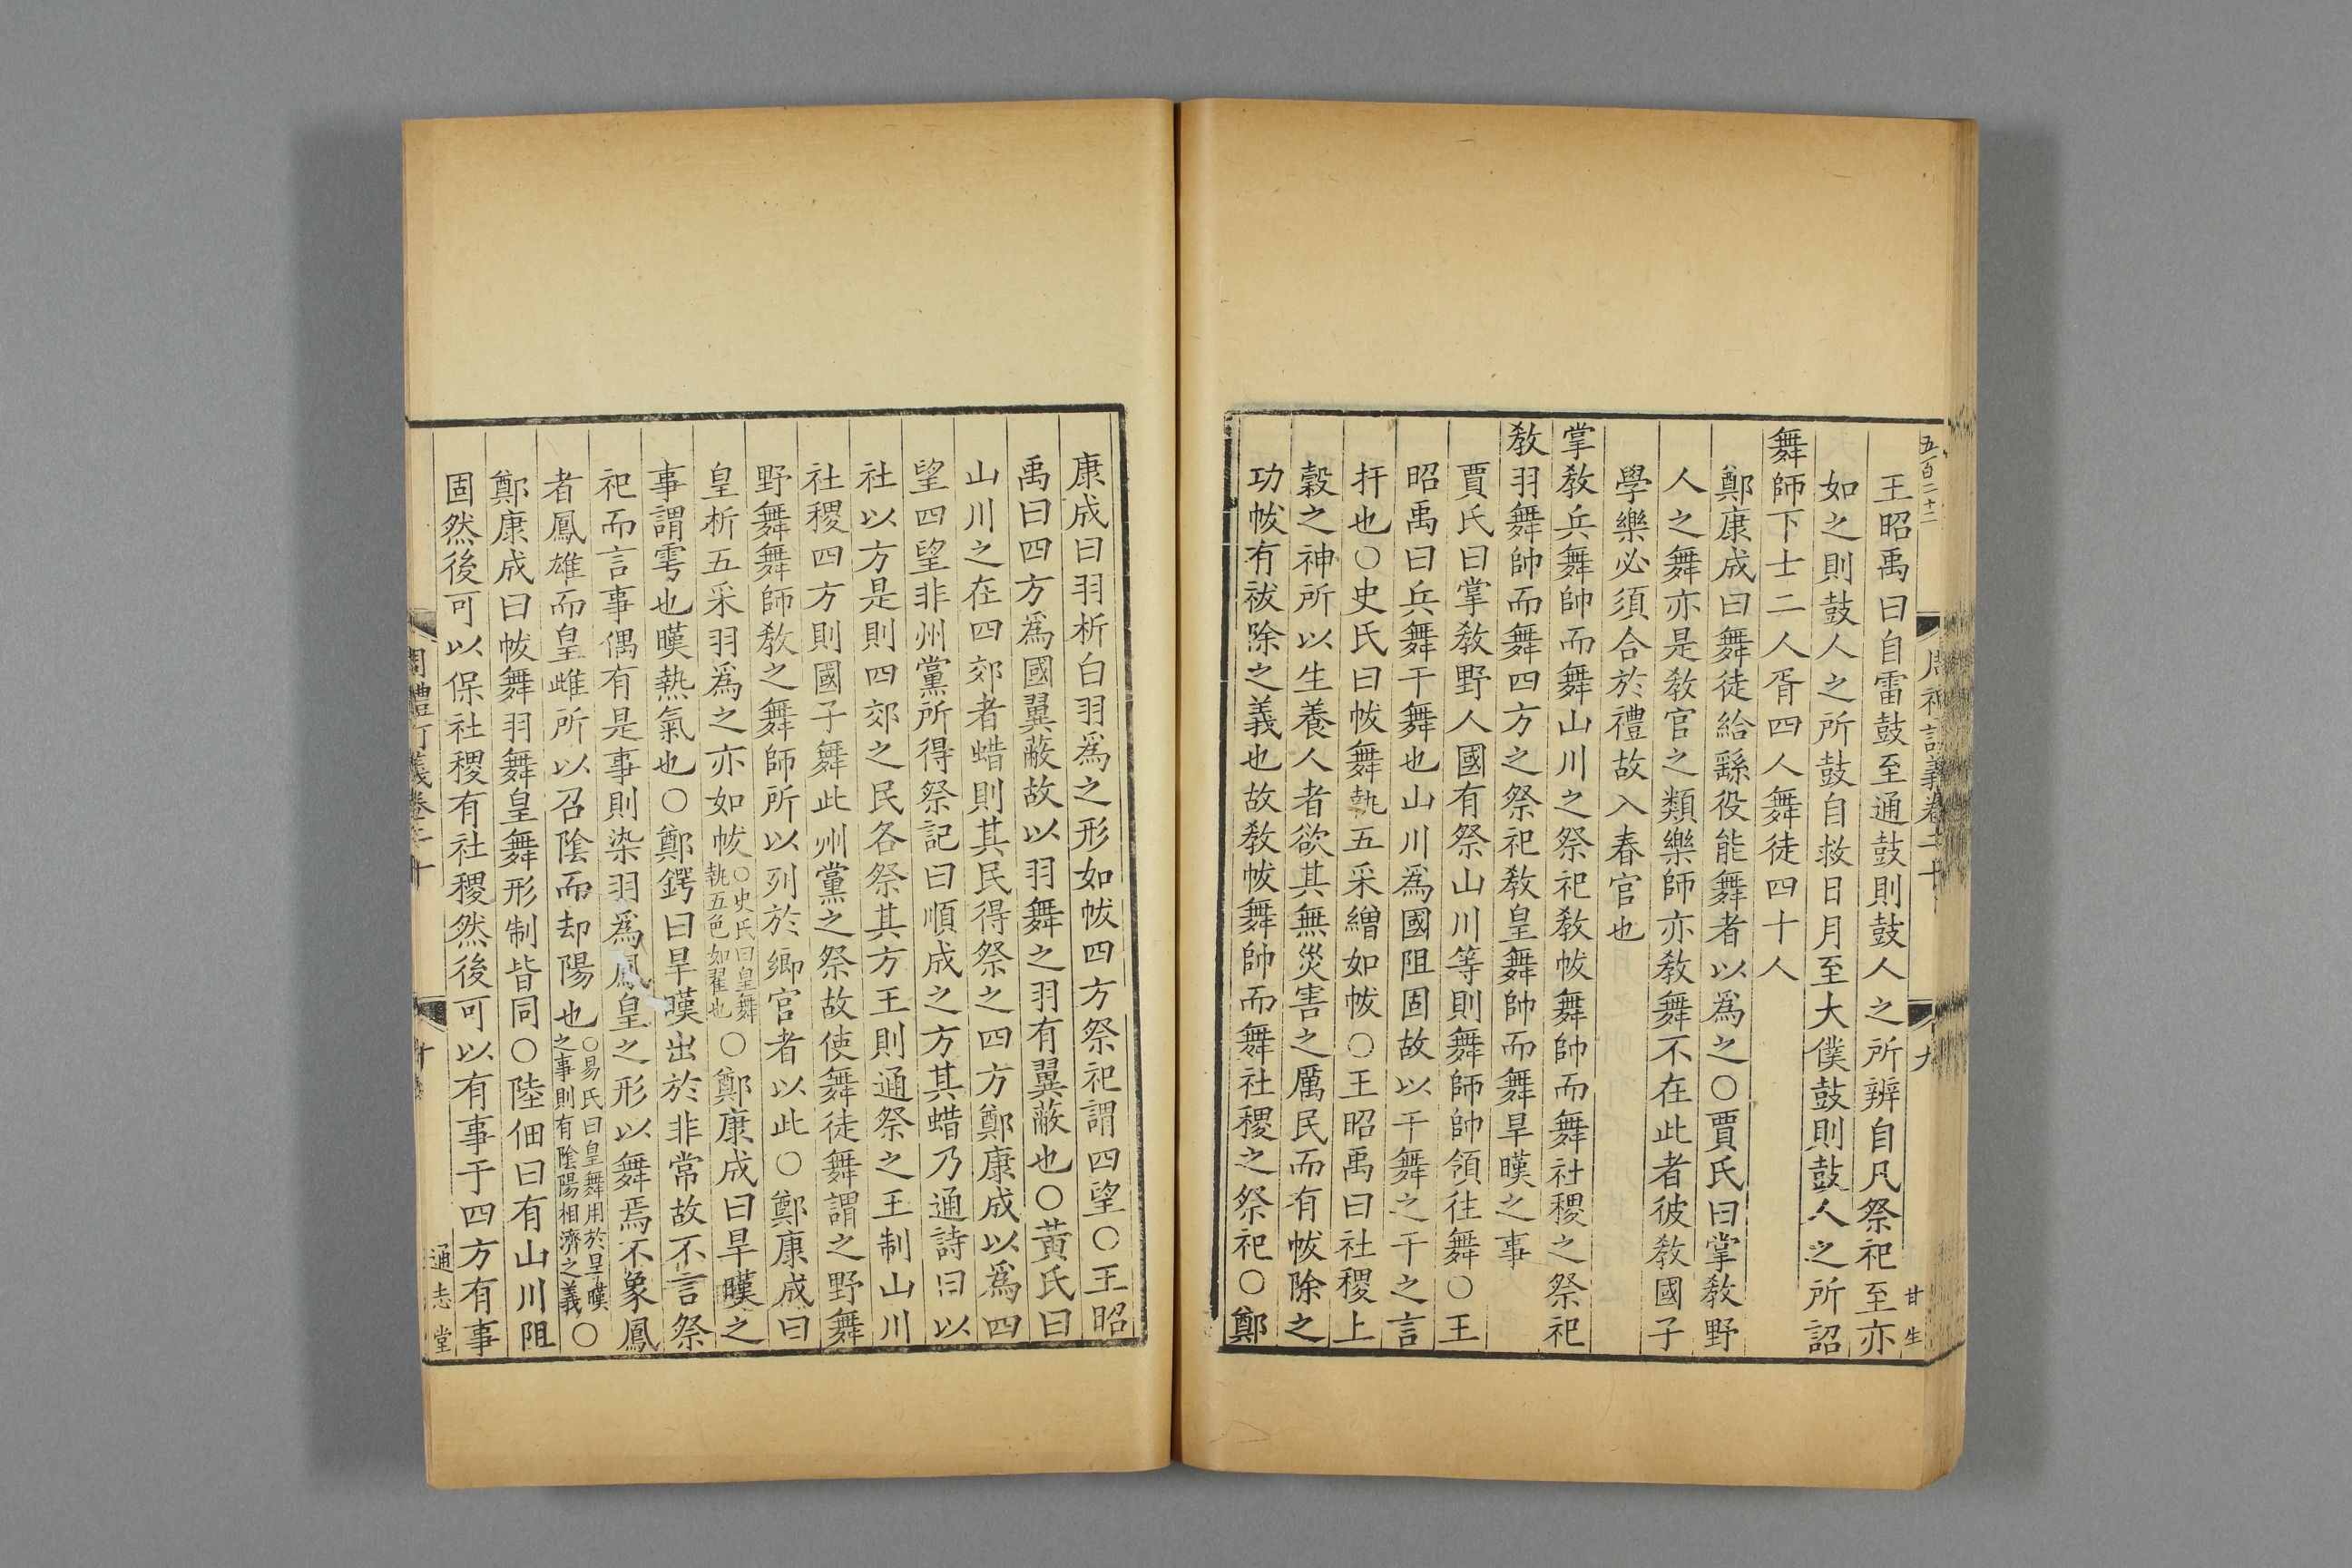 五百二十二
九
甘生
王昭禹曰自雷鼓至通鼓則鼓人之所辨自凡祭祀至亦
如之則鼓人之所鼓自救日月至大僕鼓則鼓人之所詔
舞師下士二人胥四人舞徒四十人
鄭康成曰舞徒給繇役能舞者以爲之○賈氏曰掌敎野
人之舞亦是敎官之類樂師亦敎舞不在此者彼敎國子
學樂必須合於禮故入春官也
掌敎兵舞帥而舞山川之祭祀敎帗舞帥而舞社稷之祭祀
敎羽舞帥而舞四方之祭祀敎皇舞帥而舞旱暵之事
賈氏曰掌敎野人國有祭山川等則舞師帥領往舞○王
昭禹曰兵舞干舞也山川爲國阻固故以干舞之干之言
扞也○史氏曰帗舞執五采繒如帗○王昭禹曰社稷上
穀之神所以生養人者欲其無災害之厲民而有帗除之
功帗有祓除之義也故敎帗舞帥而舞社稷之祭祀○鄭
康成曰羽析白羽爲之形如帗四方祭祀謂四望○王昭
禹曰四方爲國翼蔽故以羽舞之羽有翼蔽也○黃氏曰
山川之在四郊者蜡則其民得祭之四方鄭康成以爲四
望四望非州黨所得祭記曰順成之方其蜡乃通詩曰以
社以方是則四郊之民各祭其方王則通祭之王制山川
社稷四方則國子舞此州黨之祭故使舞徒舞謂之野舞
野舞舞師敎之舞師所以列於鄉官者以此○鄭康成曰
皇析五采羽爲之亦如帗○史氏曰皇舞執五色如翟也○鄭康成曰旱暵之
事謂雩也暵熱氣也○鄭鍔曰旱暵出於非常故不言祭
祀而言事偶有是事則染羽爲鳳皇之形以舞焉不象鳳
者鳳雄而皇雌所以召陰而却陽也○易氏曰皇舞用於旱暵之事則有陰陽相濟之義○
鄭康成曰帗舞羽舞皇舞形制皆同○陸佃曰有山川阻
固然後可以保社稷有社稷然後可以有事于四方有事
十
通志堂